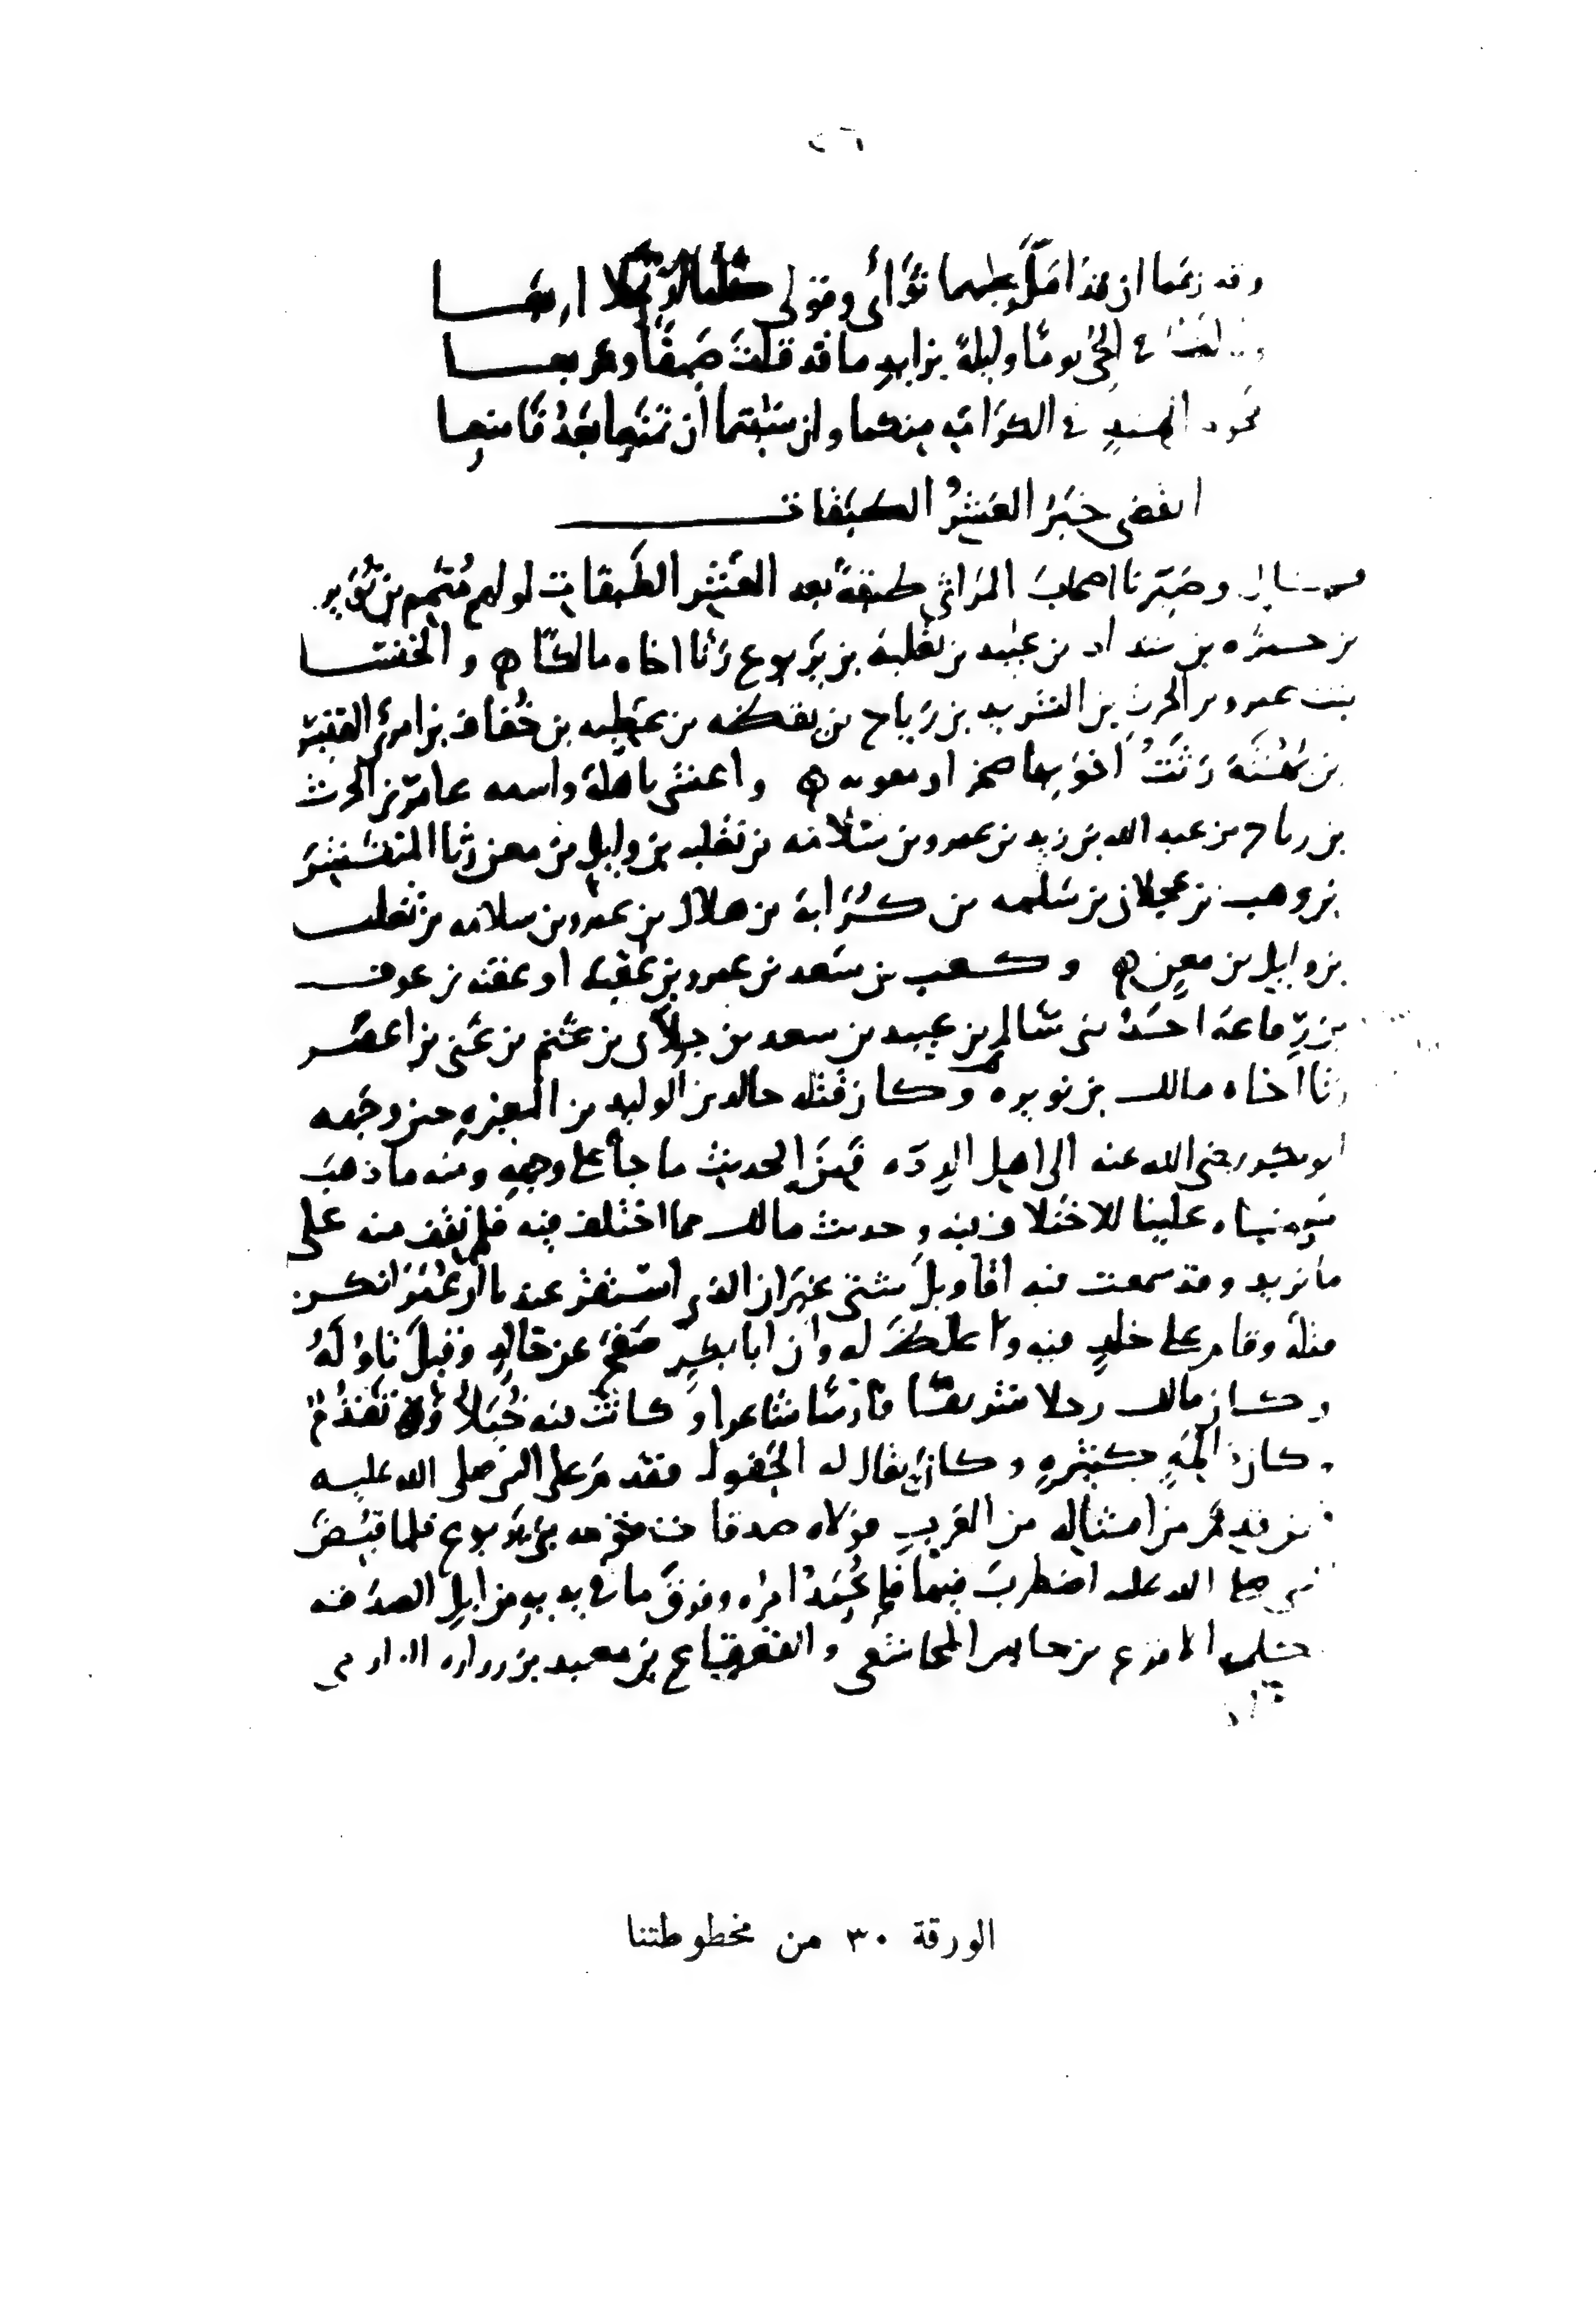 ٤٦
وقد زعما ان قد امل عليهما ثوائى وقولى كلما ارتحلا اربعا
وما لبث فى الحى يوما وليلة بزايد ما قد فات صيفا ومربعا
فجودا لهند فى الكرامة منكما وان شئتما ان تمنعا بعد فامنعا
انقضى خبر العشر الطبقات
وصيرنا اصحاب المراثى طبقة بعد العشر الطبقات اولهم متمم بن نويره
بن جمره بن شداد بن عبيد بن ثعلبة بن يربوع رثا اخاه مالكا ه والخنسا
بنت عمرو بن الحرث بن الشريد بن رياح بن يقظه بن عصيه بن خفاف بن امرئ القيس
بن بهثة رثت اخويها صخرا ومعويه ه واعشى باهلة واسمه عامر بن الحرث
بن رياح بن عبد الله بن زيد بن عمرو بن سلامه بن ثعلبه بن وايل بن معن رثا المنتشر
بن وهب بن عجلان بن سلمه بن كراثة بن هلال بن عمرو بن سلامه بن ثعلبه
بن وايل بن معن ه وكعب بن سعد بن عمرو بن عقبه او علقمه بن عوف
بن رفاعه احد بنى سالم بن عبيد بن سعد بن جلان بن غنم بن غنى بن اعصر
رثا اخاه مالك بن نويره وكان قتله خالد بن الوليد بن المغيره حين وجهه
ابو بكر رضى الله عنه الى اهل الرده فمن الحديث ما جا على وجهه ومنه ما ذهب
معناه علينا للاختلاف فيه وحديث مالك مما اختلف فيه فلم نقف منه على
ما نريد وقد سمعت فيه اقاويل شتى غير ان الذى استقر عندنا ان عمر انكر
قتله وقام على خلد فيه واغلظ له وان ابا بكر صفح عن خالد وقبل تاوله
وكان مالك رجلا شريفا فارسا شاعرا وكانت فيه خيلا وتقدم
وكان ذا لمة كبيره وكان يقال له الجفول فقدم على النبى صلى الله عليه
فيمن قدم من امثاله من العرب فولاه صدقات قومه بنى يربوع فلما قبض
النبى صلى الله عليه اضطرب فيها فلم يحمد امره وفرق ما فى يديه من ابل الصدقه
فكلمه الاقرع بن حابس المجاشعى والقعقاع بن معبد بن زراره الدارمى
الورقة ٣٠ من مخطوطتنا